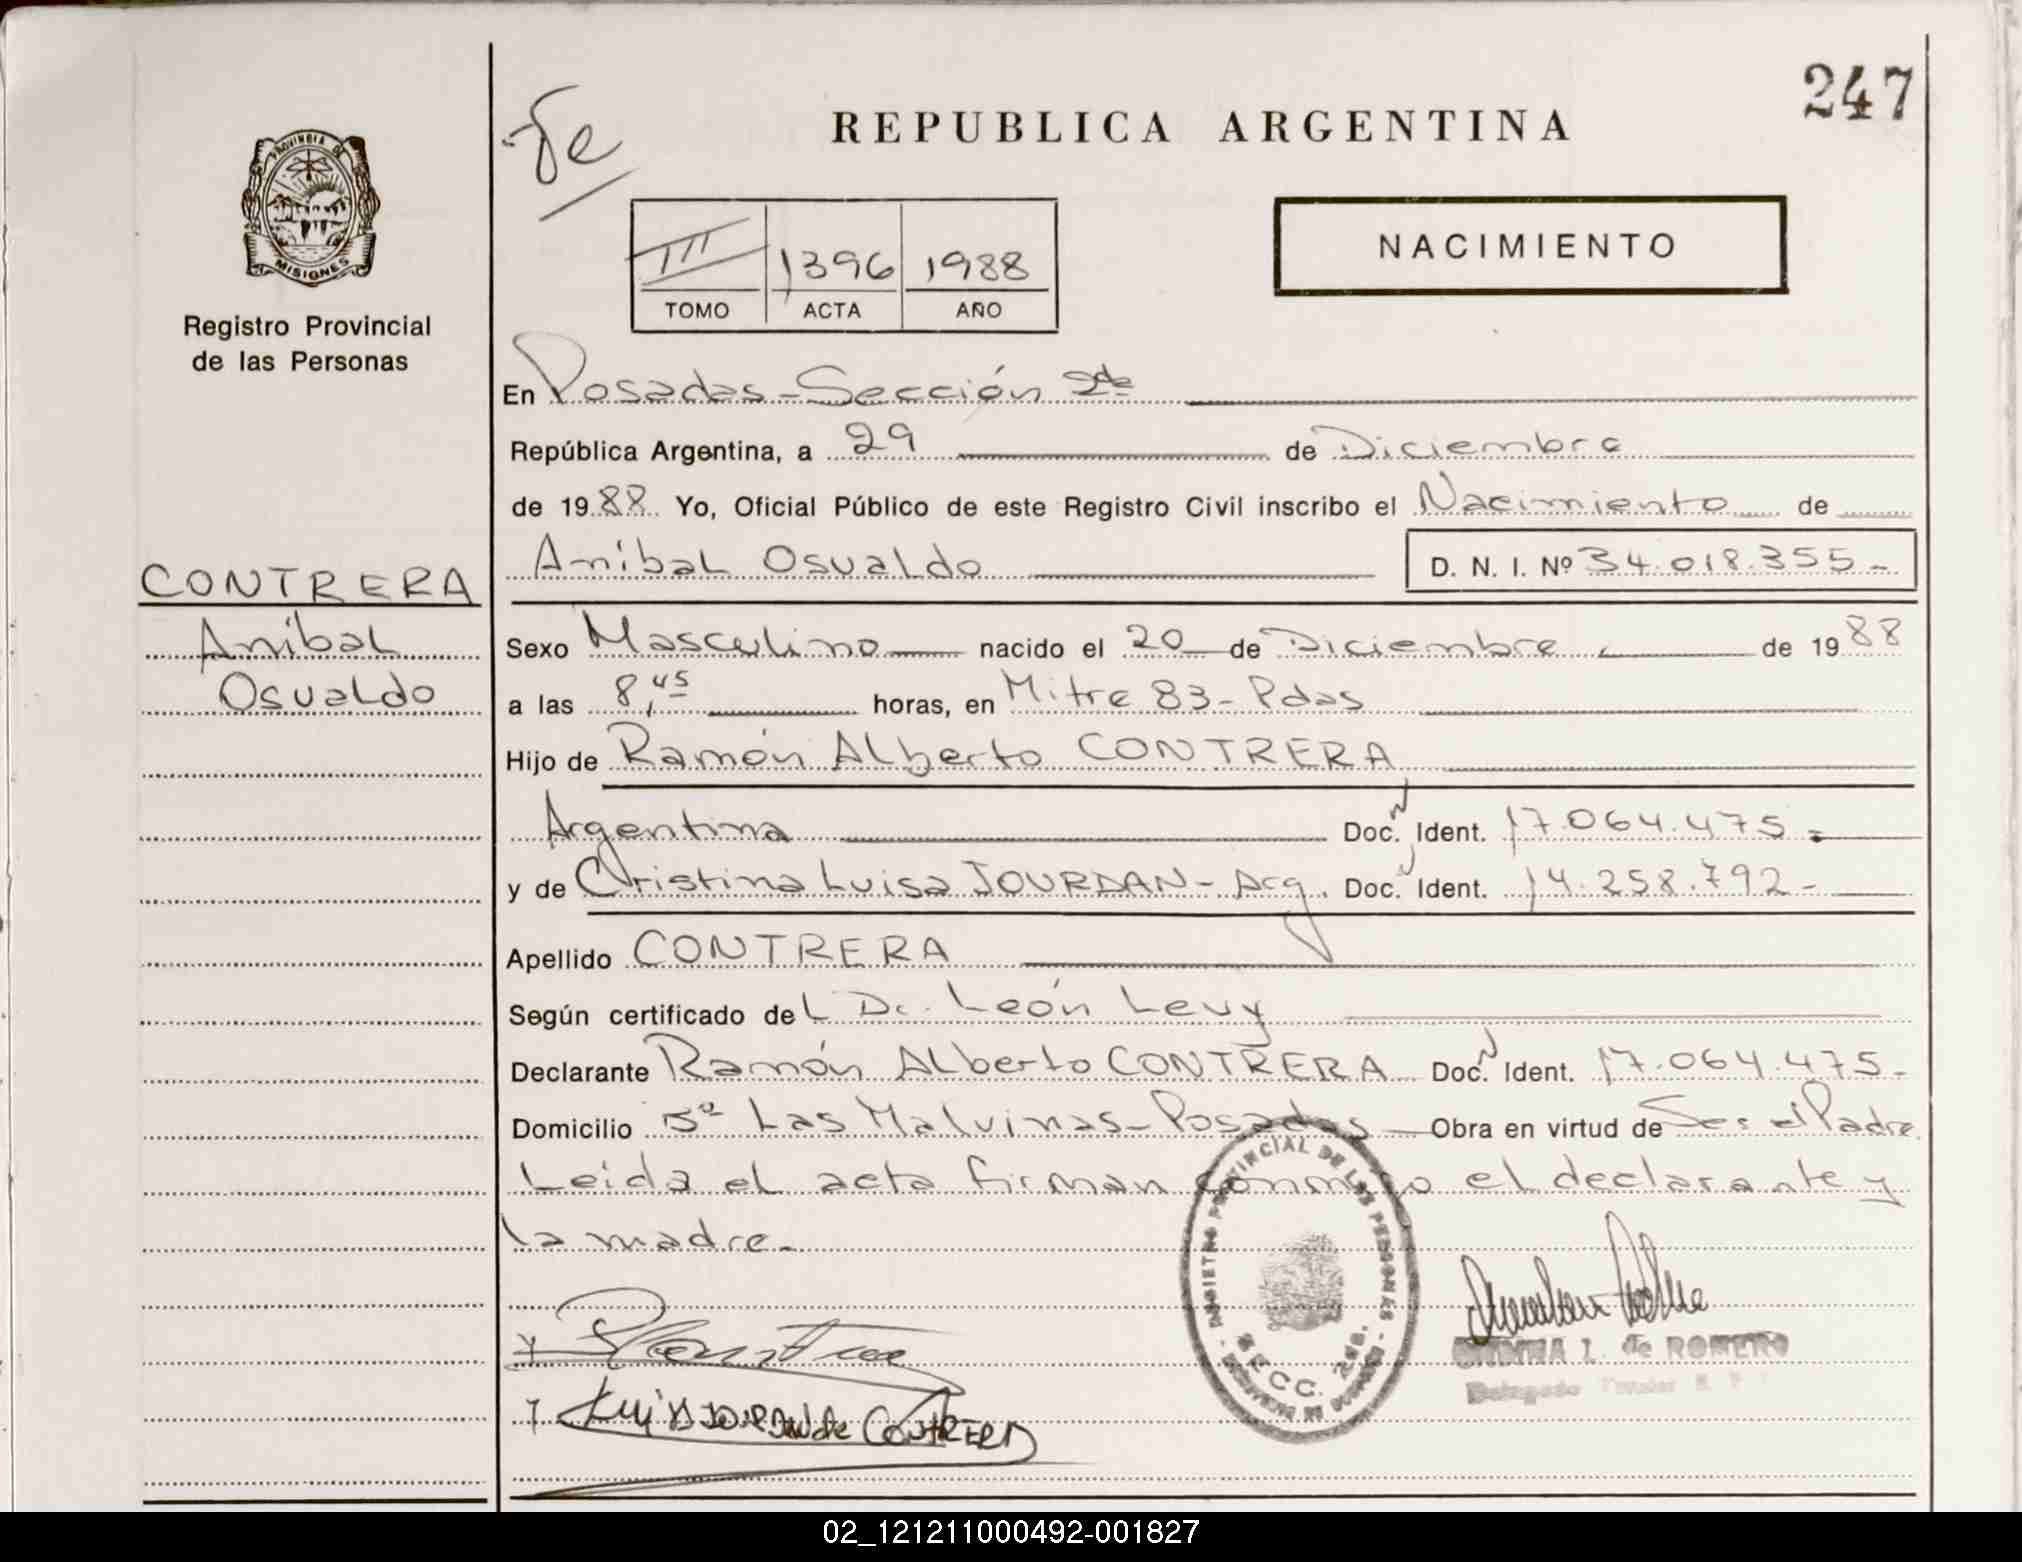 247
fe
REPUBLICA ARGENTINA
PROVINCIA DE
MISIONES
Registro Provincial
de las Personas
III 1396 1988
TOMO ACTA AÑO
NACIMIENTO
En Posadas - Sección 2da
República Argentina, a 29 de Diciembre
de 1988 Yo, Oficial Público de este Registro Civil inscribo el Nacimiento de
Aníbal Osvaldo D. N. I. Nº 34.018.355-
CONTRERA
Aníbal
Osvaldo
Sexo Masculino nacido el 20 de Diciembre de 1988
a las 8,45 horas, en Mitre 83 - Pdas
Hijo de Ramón Alberto CONTRERA
Argentina Doc. N Ident. 17.064.475-
y de Cristina Luisa JOURDAN - Arg. Doc. N Ident. 14.258.792-
Apellido CONTRERA
Según certificado del Dr. León Levy
Declarante Ramón Alberto CONTRERA Doc. N Ident. 17.064.475-
Domicilio Bº Las Malvinas - Posadas Obra en virtud de Ser el Padre
Leida el acta firman conmigo el declarante y
la madre.-
REGISTRO PROVINCIAL DE LAS PERSONAS
SECC. 2da.
Luisa JOURDAN de CONTRERA
L. de ROMERO
Delegado Titular R. P.
02_121211000492-001827